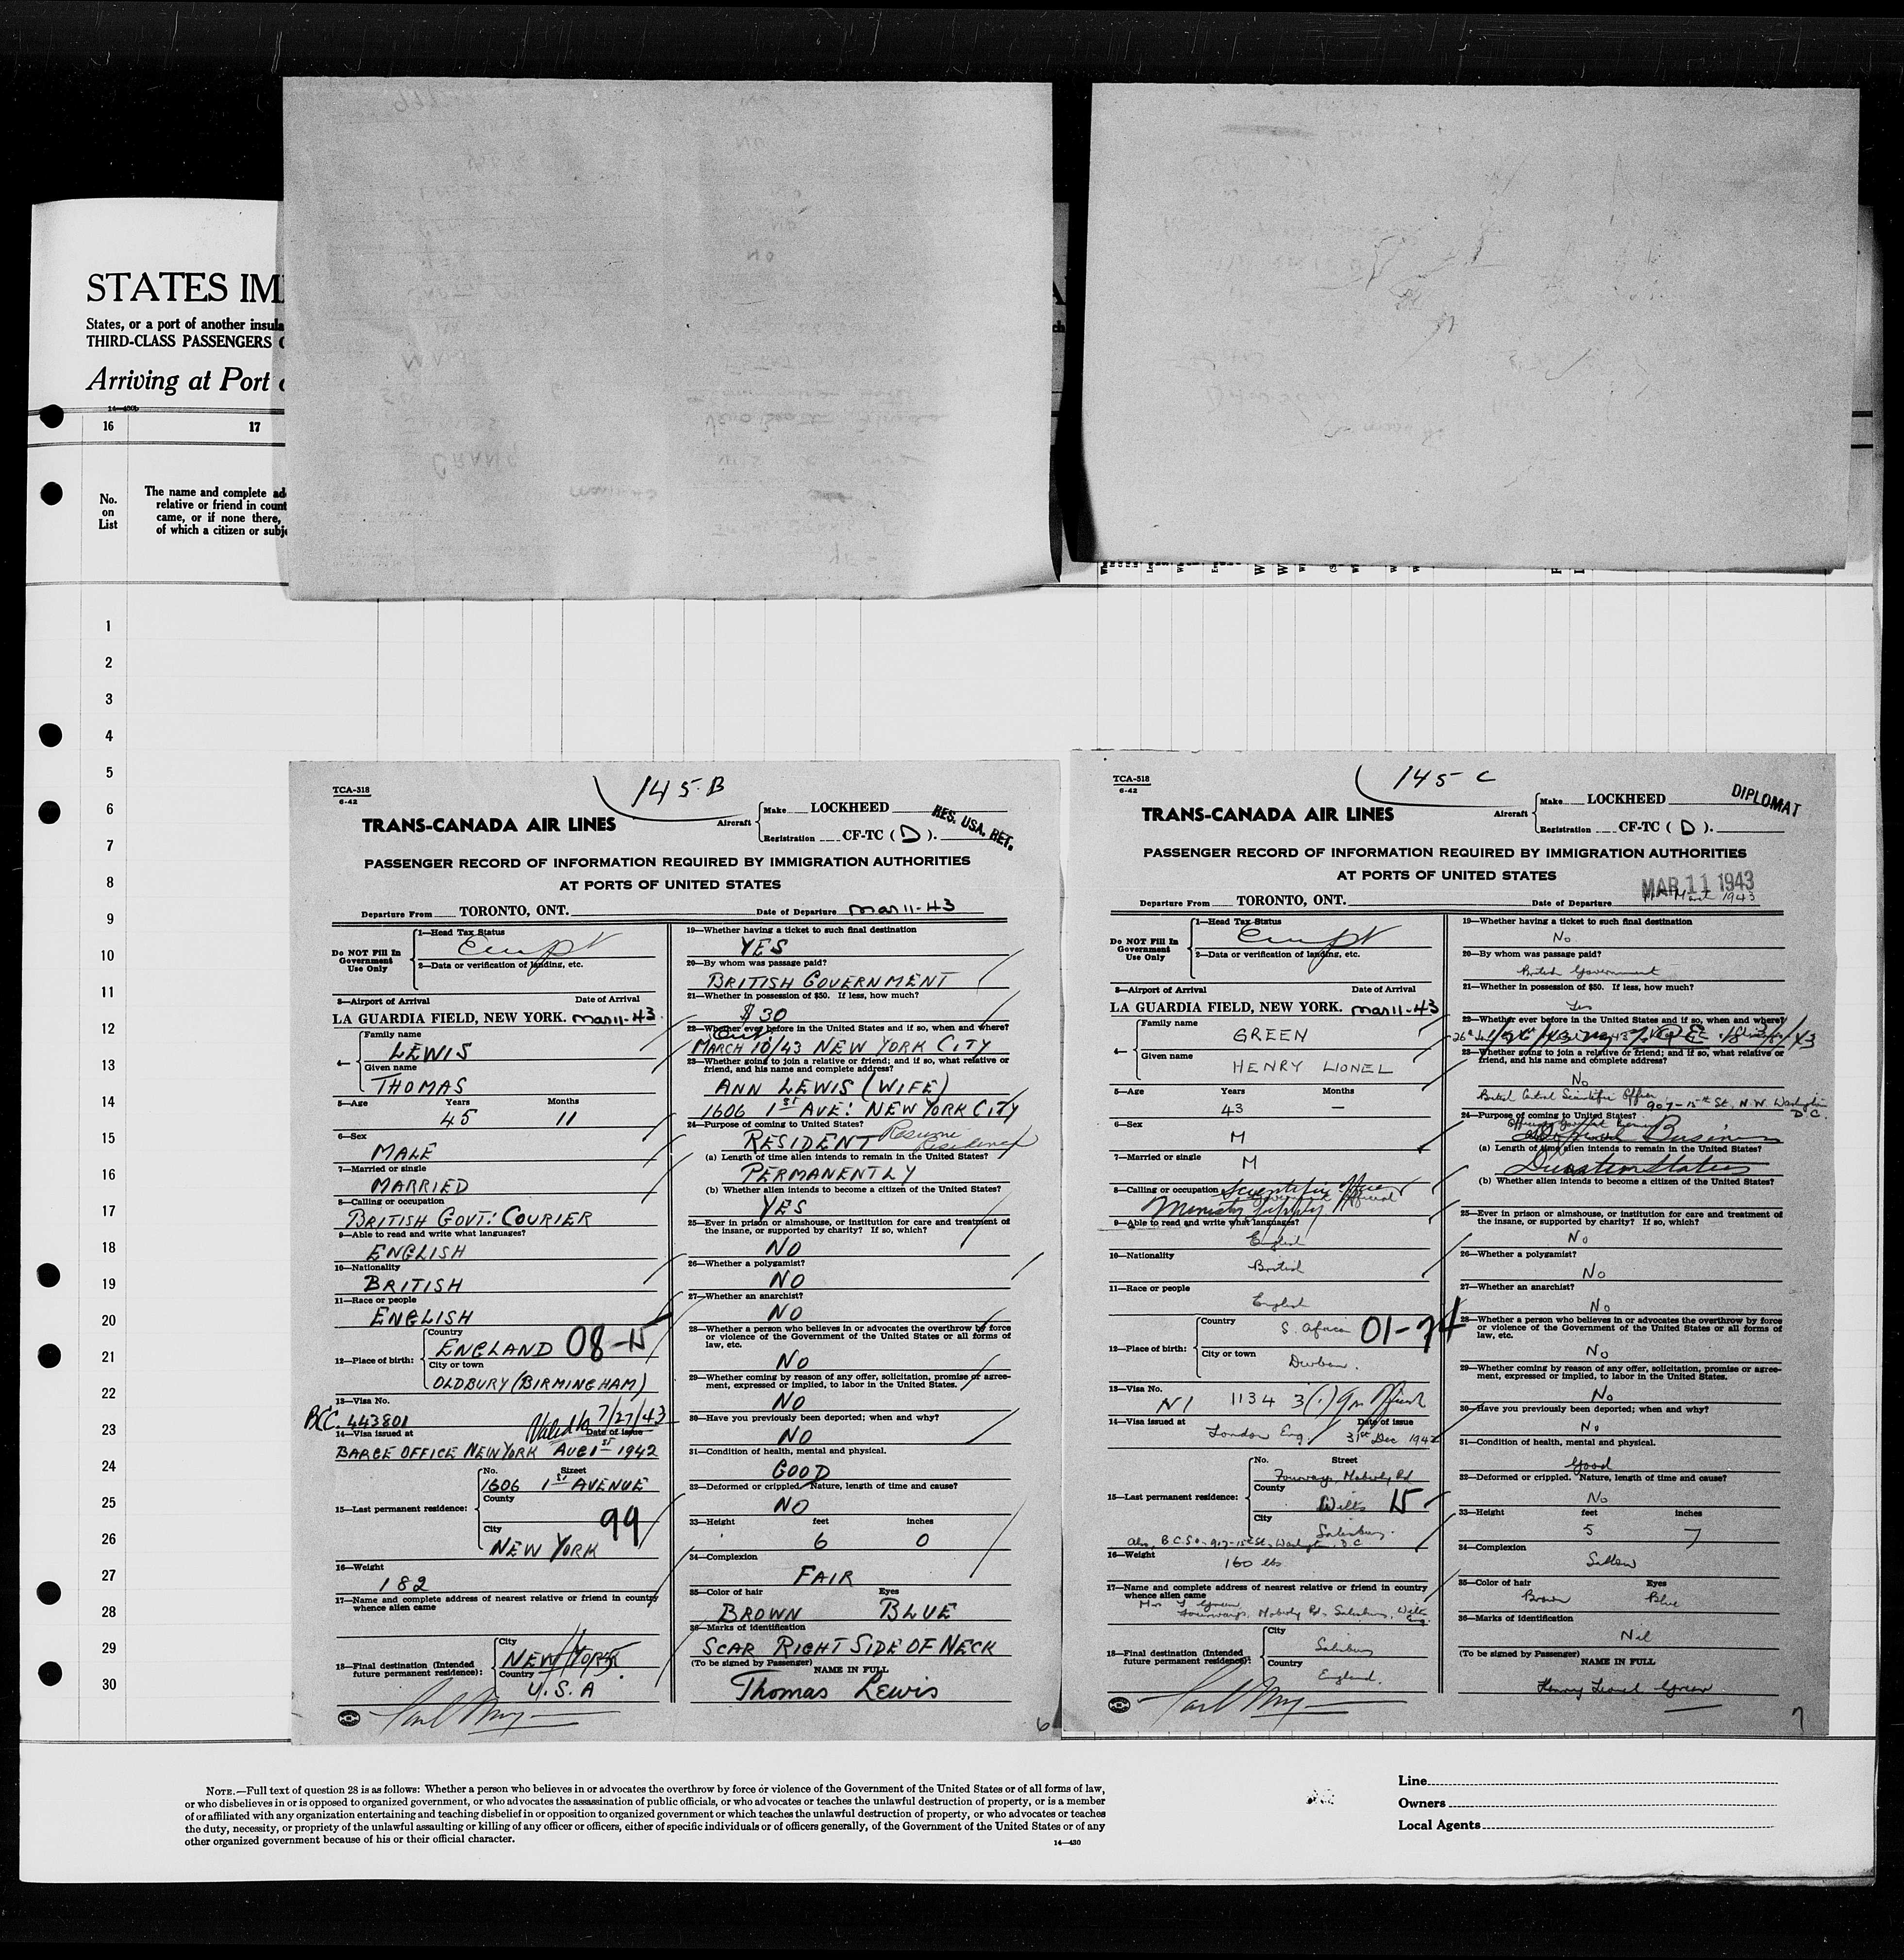 STATES IM
States, or a port of another insula
THIRD-CLASS PASSENGERS
Arriving at Port
14—430b
16
17
No.
on
List
The name and complete ad
relative or friend in count
came, or if none there,
of which a citizen or subje
1
2
3
4
5
6
7
8
9
10
11
12
13
14
15
16
17
18
19
20
21
22
23
24
25
26
27
28
29
30
TCA-318
6-42
145-B
TRANS-CANADA AIR LINES
Aircraft
Make LOCKHEED
Registration CF-TC ( D ).
RES. USA. RET.
PASSENGER RECORD OF INFORMATION REQUIRED BY IMMIGRATION AUTHORITIES
AT PORTS OF UNITED STATES
Departure From TORONTO, ONT.
Date of Departure Mar 11-43
Do NOT Fill In
Government
Use Only
1—Head Tax Status
2—Data or verification of landing, etc.
3—Airport of Arrival Date of Arrival
LA GUARDIA FIELD, NEW YORK. Mar 11-43.
4—
Family name
LEWIS
Given name
THOMAS
5—Age Years Months
45 11
6—Sex
MALE
7—Married or single
MARRIED
8—Calling or occupation
BRITISH GOVT: COURIER
9—Able to read and write what languages?
ENGLISH
10—Nationality
BRITISH
11—Race or people
ENGLISH
12—Place of birth:
Country
ENGLAND 08-15
City or town
OLDBURY (BIRMINGHAM)
13—Visa No.
BCC. 443801 Valid to 7/27/43
14—Visa issued at Date of issue
BARGE OFFICE NEW YORK AUG 1ST 1942
15—Last permanent residence:
No. Street
1606 1ST AVENUE
County
99
City
NEW YORK
16—Weight
182
17—Name and complete address of nearest relative or friend in country
whence alien came
18—Final destination (Intended
future permanent residence):
City
NEW YORK
Country
U.S.A
19—Whether having a ticket to such final destination
YES
20—By whom was passage paid?
BRITISH GOVERNMENT
21—Whether in possession of $50. If less, how much?
$30
22—Whether ever before in the United States and if so, when and where?
MARCH 10/43 NEW YORK CITY
23—Whether going to join a relative or friend; and if so, what relative or
friend, and his name and complete address?
ANN LEWIS (WIFE)
1606 1ST AVE: NEW YORK CITY
24—Purpose of coming to United States?
RESIDENT Resume Residence
(a) Length of time alien intends to remain in the United States?
PERMANENTLY
(b) Whether alien intends to become a citizen of the United States?
YES
25—Ever in prison or almshouse, or institution for care and treatment of
the insane, or supported by charity? If so, which?
NO
26—Whether a polygamist?
NO
27—Whether an anarchist?
NO
28—Whether a person who believes in or advocates the overthrow by force
or violence of the Government of the United States or all forms of
law, etc.
NO
29—Whether coming by reason of any offer, solicitation, promise or agree-
ment, expressed or implied, to labor in the United States.
NO
30—Have you previously been deported; when and why?
NO
31—Condition of health, mental and physical.
GOOD
32—Deformed or crippled. Nature, length of time and cause?
NO
33—Height feet inches
6 0
34—Complexion
FAIR
35—Color of hair Eyes
BROWN BLUE
36—Marks of identification
SCAR RIGHT SIDE OF NECK
(To be signed by Passenger)
NAME IN FULL
Thomas Lewis
6
TCA-318
6-42
145-C
TRANS-CANADA AIR LINES
Aircraft
Make LOCKHEED
Registration CF-TC ( D ).
DIPLOMAT
PASSENGER RECORD OF INFORMATION REQUIRED BY IMMIGRATION AUTHORITIES
AT PORTS OF UNITED STATES
MAR 11 1943
Departure From TORONTO, ONT.
Date of Departure March 1943
Do NOT Fill In
Government
Use Only
1—Head Tax Status
2—Data or verification of landing, etc.
3—Airport of Arrival Date of Arrival
LA GUARDIA FIELD, NEW YORK. Mar 11-43
4—
Family name
GREEN
Given name
HENRY LIONEL
5—Age Years Months
43 —
6—Sex
M
7—Married or single
M
8—Calling or occupation Scientific Officer
Ministry Supply
9—Able to read and write what languages?
English
10—Nationality
British
11—Race or people
English
12—Place of birth:
Country
S. Africa 01-74
City or town
Durban.
13—Visa No.
N1 1134 3(1)
14—Visa issued at Date of issue
London Eng. 31st Dec 1942
15—Last permanent residence:
No. Street
Fourways, Moberly Rd
County
Wilts 15
City
Salisbury.
Also, B.C.S.O. 907-15th St, Washington, D.C
16—Weight
160 lbs
17—Name and complete address of nearest relative or friend in country
whence alien came
Green,
Fourways, Moberly Rd, Salisbury, Wilts
Eng.
18—Final destination (Intended
future permanent residence):
City
Salisbury
Country
England.
19—Whether having a ticket to such final destination
No
20—By whom was passage paid?
British Government
21—Whether in possession of $50. If less, how much?
Yes
22—Whether ever before in the United States and if so, when and where?
23—Whether going to join a relative or friend; and if so, what relative or
friend, and his name and complete address?
No
British Central Scientific Office
907-15th St. N.W. Washington
D.C.
24—Purpose of coming to United States?
Business
(a) Length of time alien intends to remain in the United States?
Duration Status
(b) Whether alien intends to become a citizen of the United States?
25—Ever in prison or almshouse, or institution for care and treatment of
the insane, or supported by charity? If so, which?
No
26—Whether a polygamist?
No
27—Whether an anarchist?
No
28—Whether a person who believes in or advocates the overthrow by force
or violence of the Government of the United States or all forms of
law, etc.
No
29—Whether coming by reason of any offer, solicitation, promise or agree-
ment, expressed or implied, to labor in the United States.
No
30—Have you previously been deported; when and why?
No
31—Condition of health, mental and physical.
Good
32—Deformed or crippled. Nature, length of time and cause?
No
33—Height feet inches
5 7
34—Complexion
Sallow
35—Color of hair Eyes
Brown Blue
36—Marks of identification
Nil
(To be signed by Passenger)
NAME IN FULL
Henry Lionel Green
7
NOTE.—Full text of question 28 is as follows: Whether a person who believes in or advocates the overthrow by force or violence of the Government of the United States or of all forms of law,
or who disbelieves in or is opposed to organized government, or who advocates the assassination of public officials, or who advocates or teaches the unlawful destruction of property, or is a member
of or affiliated with any organization entertaining and teaching disbelief in or opposition to organized government or which teaches the unlawful destruction of property, or who advocates or teaches
the duty, necessity, or propriety of the unlawful assaulting or killing of any officer or officers, either of specific individuals or of officers generally, of the Government of the United States or of any
other organized government because of his or their official character.
14—430
Line
Owners
Local Agents